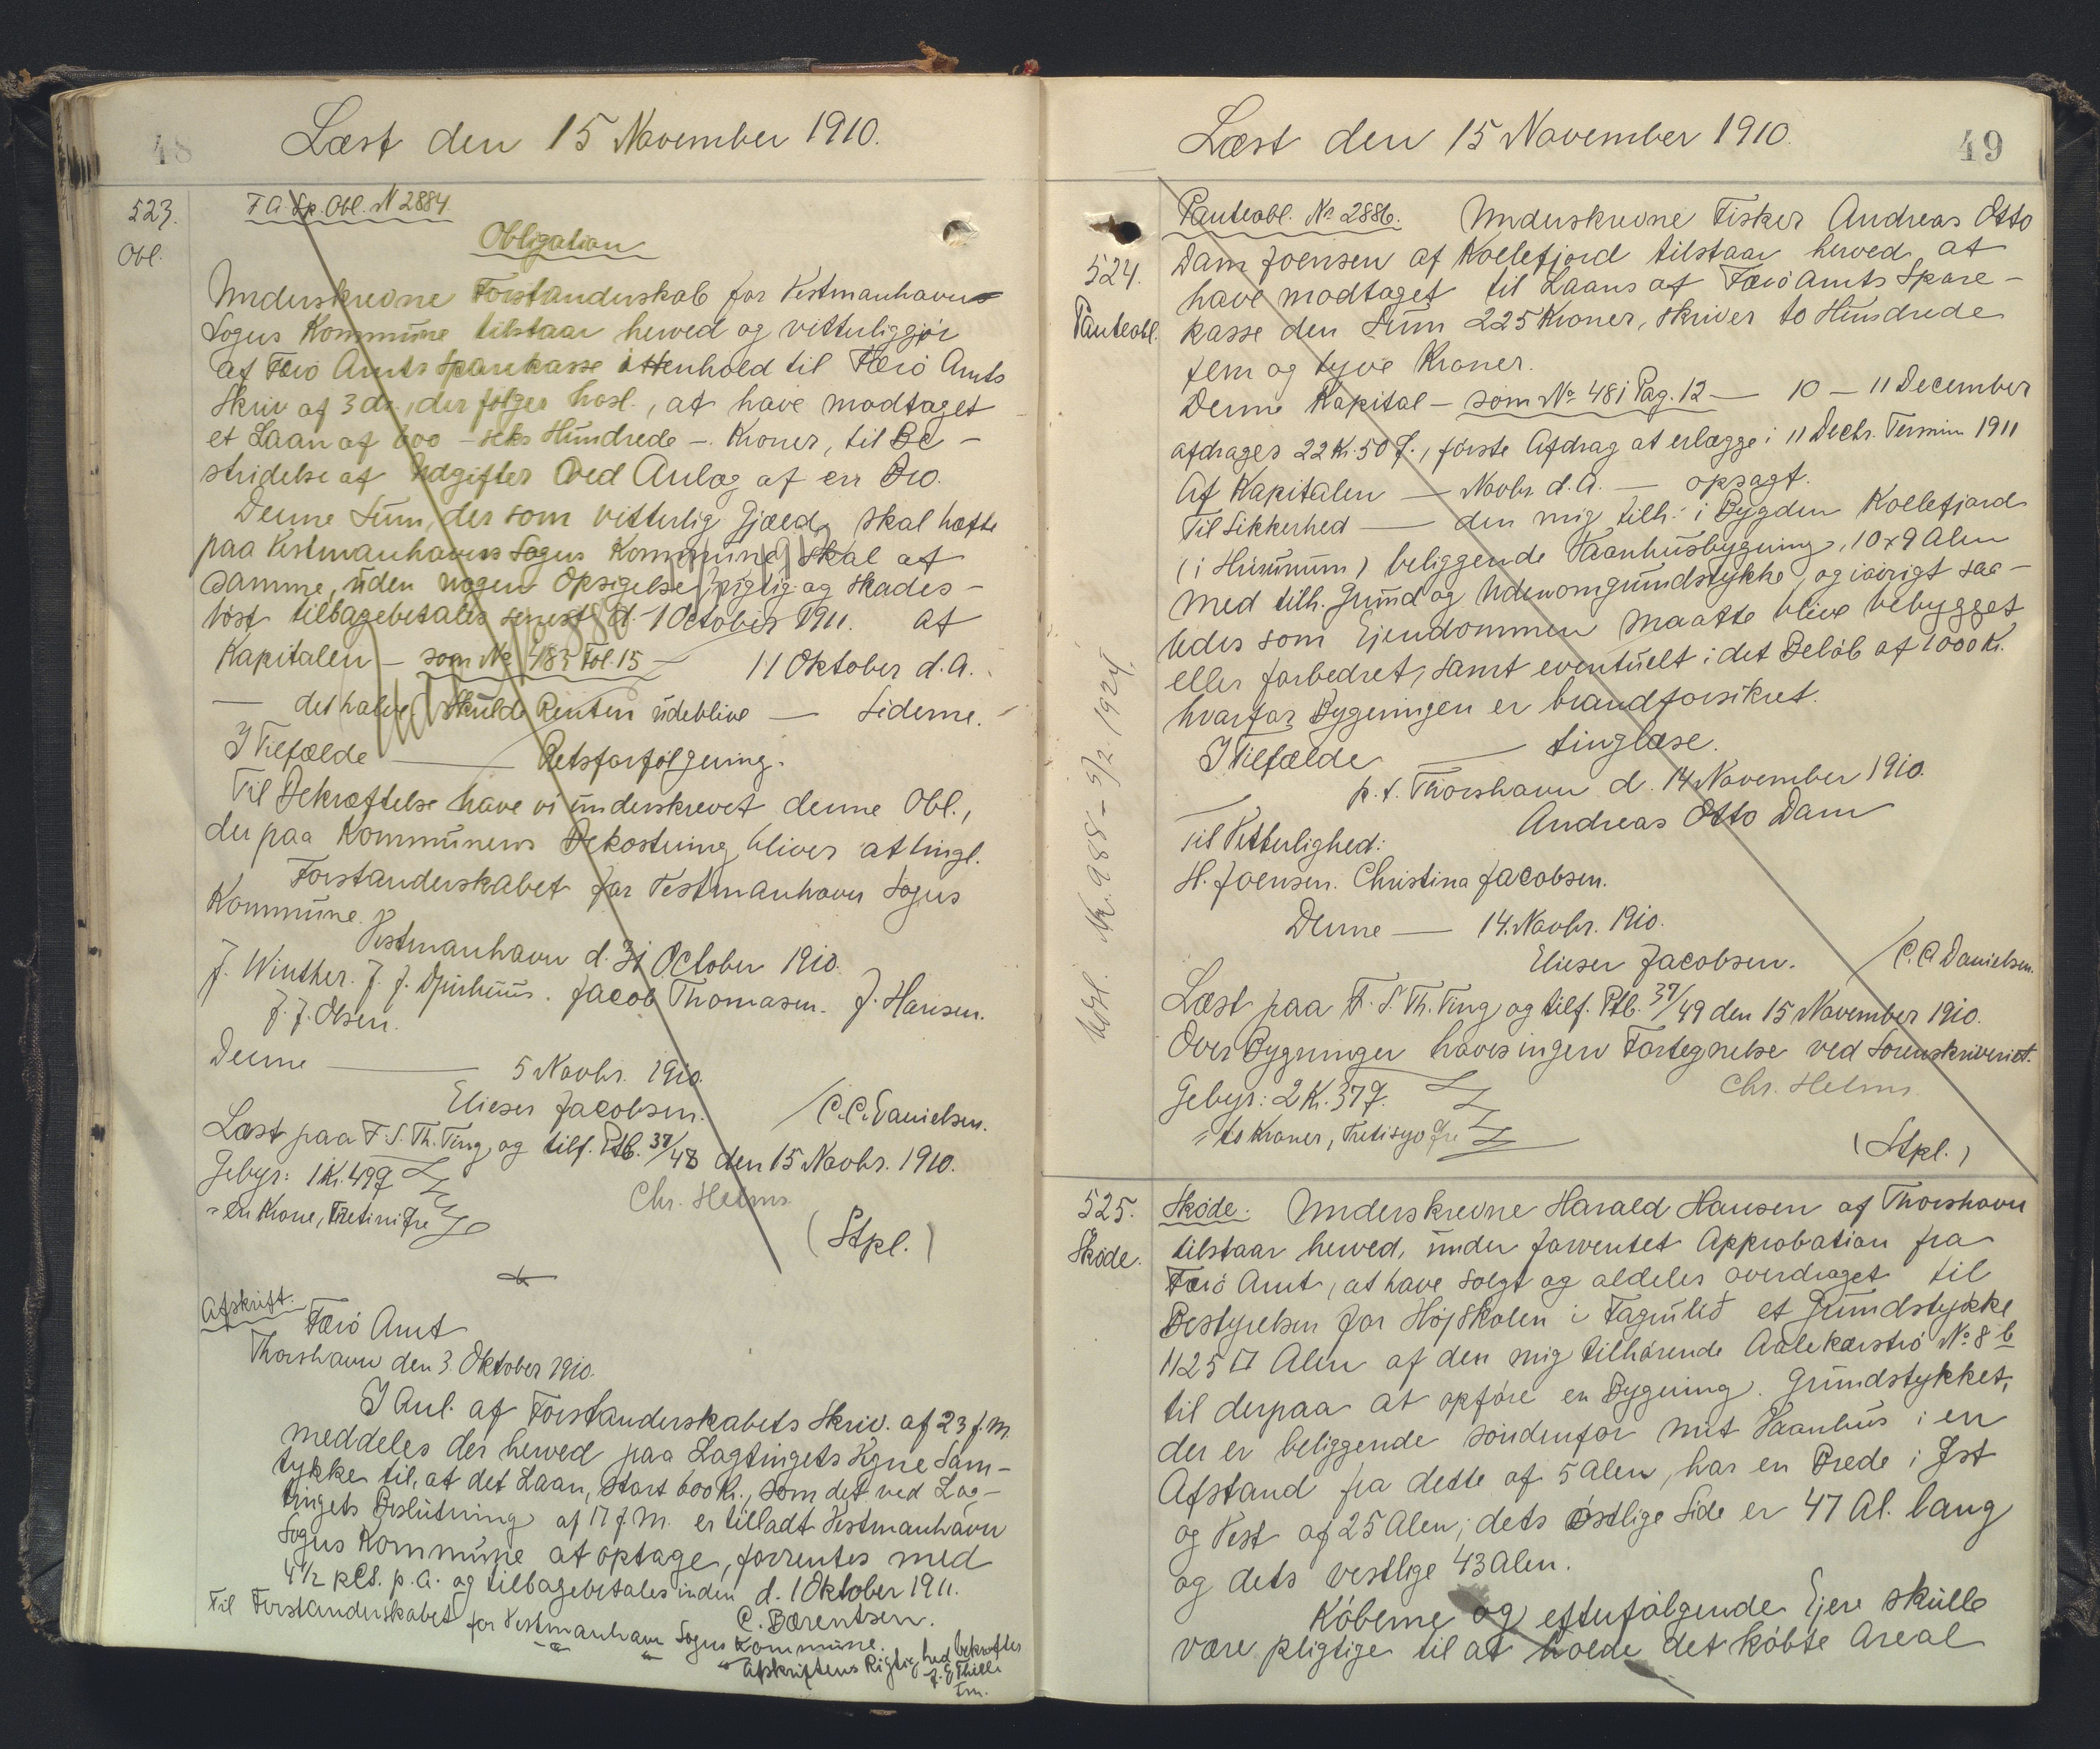 48
Læst den 15 November 1910.
523.
Obl.
F. A. Sp. Obl. N 2884.
Obligation
Underskrevne Forstanderskab for Vestmanhavns
Sogns Kommune tilstaar herved og vitterliggjør
af Færö Amts Sparekasse i Henhold til Færö Amts
Skriv af 3 ds., der følger hosl., at have modtaget
et Laan af 600 - seks Hundrede - Kroner, til Be-
stridelse af Udgifter ved Anlæg af en Bro.
Denne Sum, der som vitterlig Gjæld skal hæfte
paa Vestmanhavns Sogns Kommune skal af
samme, uden nogen Opsigelse, rigtig og skades-
löst tilbagebetales senest d. 1 October 1911. At
Kapitalen - som No 485 Fol. 15 - 11 Oktober d. A.
- det halve. Skulde Renten udeblive - Siderne.
I Tilfælde - Retsforfølgning.
Til Bekræftelse have vi underskrevet denne Obl.,
der paa Kommunens Bekostning bliver at tingl.
Forstanderskabet for Vestmanhavn Sogns
Kommune.
Vestmanhavn d. 31 October 1910.
J. Winther. J. J. Djurhuus. Jacob Thomasen. J. Hansen.
J. J. Olsen.
Denne - 5 Novbr. 1910.
Elieser Jacobsen. / C. C. Danielsen.
Læst paa F. S. Th. Ting og tilf. Ptb. 37/48 den 15 Novbr. 1910.
Gebyr: 1 Kr. 49 Ø
= en Krone, Fireti ni Øre
Chr. Helms.
(Stpl.)
Afskrift:
Færö Amt
Thorshavn den 3. Oktober 1910.
I Anl. af Forstanderskabets Skriv. af 23 f. M.
meddeles der herved paa Lagtingets Vgne Sam-
tykke til, at det Laan, stort 600 Kr., som det ved Lag-
tingets Beslutning af 17 f. M. er tilladt Vestmanhavn
Sogns Kommune at optage, forrentes med
4 1/2 pCt. p. a. og tilbagebetales inden d. 1 Oktober 1911.
C. Bærentsen.
Til Forstanderskabet for Vestmanhavn Sogns Kommune.
Afskriftens Rigtighed bekræftes
49
Læst den 15 November 1910.
524.
Panteobl.
Panteobl. No 2886. Underskrevne Fisker Andreas Otto
Dam Joensen af Kollefjord tilstaar herved at
have modtaget til Laans af Færö Amts Spare-
kasse den Sum 225 Kroner, skriver to Hundrede
fem og tyve Kroner.
Denne Kapital - som No 481 Pag. 12 - 10 - 11 December
afdrages 22 Kr. 50 Ø., første Afdrag at erlægge i 11 Decbr. Termin 1911
Af Kapitalen - Novbr. d. A. - opsagt.
Til Sikkerhed - den mig tilh. i Bygden Kollefjord
(i Husunum) beliggende Vaanhusbygning, 10 x 9 Alen
med tilh. Grund og Udenomgrundstykke, og iøvrigt saa-
ledes som Ejendommen maatte blive bebygget
eller forbedret, samt eventuelt i det Beløb af 1000 Kr.
hvorfor Bygningen er brandforsikret.
I Tilfælde - tinglæse.
p. t. Thorshavn d. 14 November 1910.
Andreas Otto Dam
Til Vitterlighed:
H. Joensen. Christina Jacobsen.
Denne - 14. Novbr. 1910.
Elieser Jacobsen. / C. C. Danielsen.
Læst paa F. S. Th. Ting og tilf. Ptb. 37/49 den 15 November 1910.
Over Bygninger haves ingen Fortegnelse ved Sorenskriveriet.
Gebyr: 2 K. 37 Ø.
= to Kroner, Tretisyv Øre
Chr. Helms.
(Stpl.)
Udsl. Nr. 988 - 5/2 1924.
525.
Skøde.
Skøde. Underskrevne Harald Hansen af Thorshavn
tilstaar herved, under forventet Approbation fra
Færö Amt, at have solgt og aldeles overdraget til
Bestyrelsen for Højskolen i Fagralid et Grundstykke
1125 □ Alen af den mig tilhørende Aalekærstrø No 8 b
til derpaa at opføre en Bygning. Grundstykket,
der er beliggende søndenfor mit Vaanhus i en
Afstand fra dette af 5 Alen, har en Brede i Øst
og Vest af 25 Alen; dets østlige Side er 47 Al. lang
og dets vestlige 43 Alen.
Köberne og efterfølgende Ejere skulle
være pligtige til at holde det købte Areal